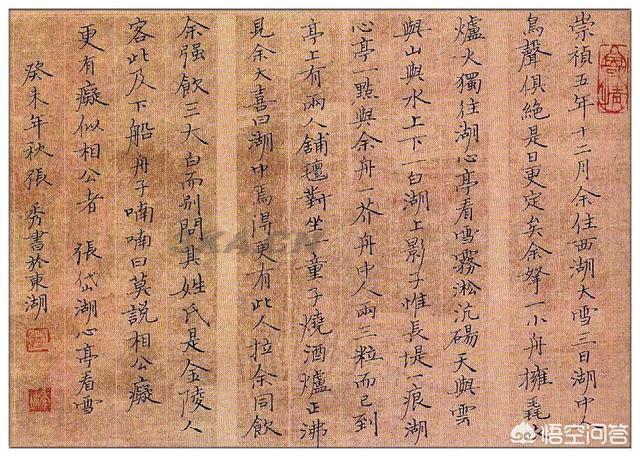 崇禎五年十二月余住西湖大雪三日湖中人
鳥聲俱絕是日更定矣余拏一小舟擁毳衣
爐火獨往湖心亭看雪霧淞沆碭天與雲
與山與水上下一白湖上影子惟長堤一痕湖
心亭一點與余舟一芥舟中人兩三粒而已到
亭上有兩人鋪氈對坐一童子燒酒爐正沸
見余大喜曰湖中焉得更有此人拉余同飲
余强飲三大白而別問其姓氏是金陵人
客此及下船舟子喃喃曰莫說相公癡
更有癡似相公者 張岱湖心亭看雪
癸未年秋張秀書於東湖
悟空问答